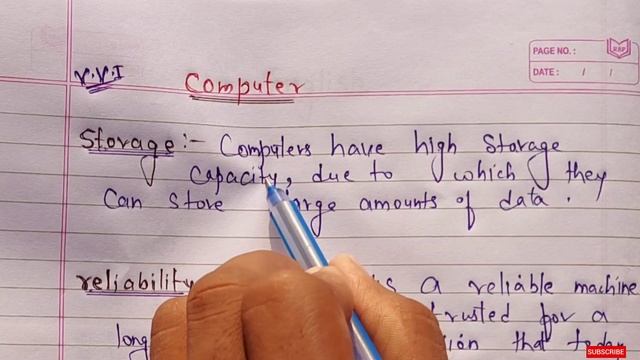 PAGE NO.:
RBP
DATE: / /
V.V.I
Computer
Storage:- Computers have high Storage
capacity, due to which they
Can store large amounts of data.
reliability a reliable machine
trusted for a
long that today
SUBSCRIBE